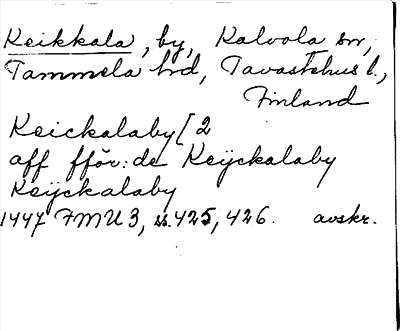 Keikkala, by, Kalvola sn,
Tammela hd, Tavastehus l.,
Finland
Keickalaby [2
aff fför: de Keÿckalaby
Keÿckalaby
1447 FMU 3, ss. 425, 426. avskr.